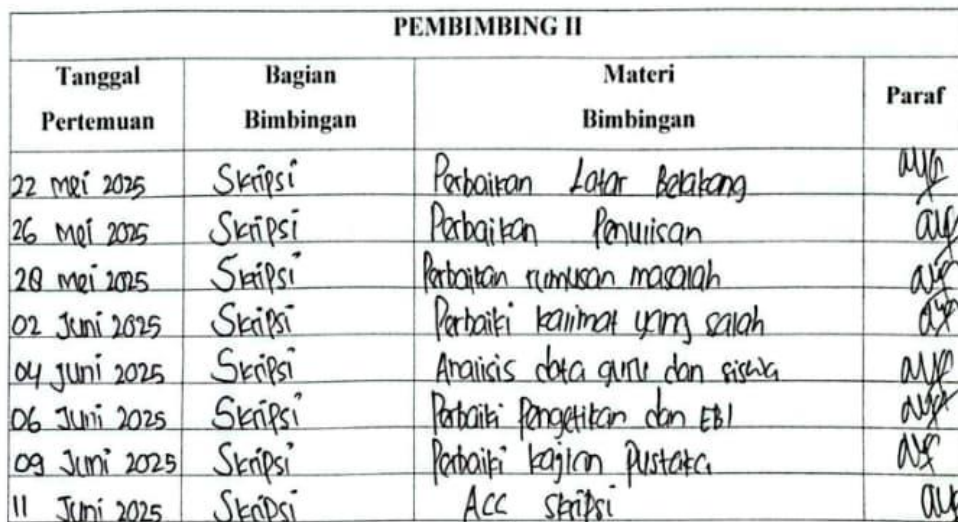 PEMBIMBING II
Tanggal Pertemuan Bagian Bimbingan Materi Bimbingan Paraf
22 Mei 2025 Skripsi Perbaikan Latar Belakang
26 Mei 2025 Skripsi Perbaikan Penulisan
28 Mei 2025 Skripsi Perbaikan rumusan masalah
02 Juni 2025 Skripsi Perbaiki kalimat yang salah
04 Juni 2025 Skripsi Analisis data guru dan siswa
06 Juni 2025 Skripsi Perbaiki Pengetikan dan EBI
09 Juni 2025 Skripsi Perbaiki kajian Pustaka
11 Juni 2025 Skripsi Acc skripsi